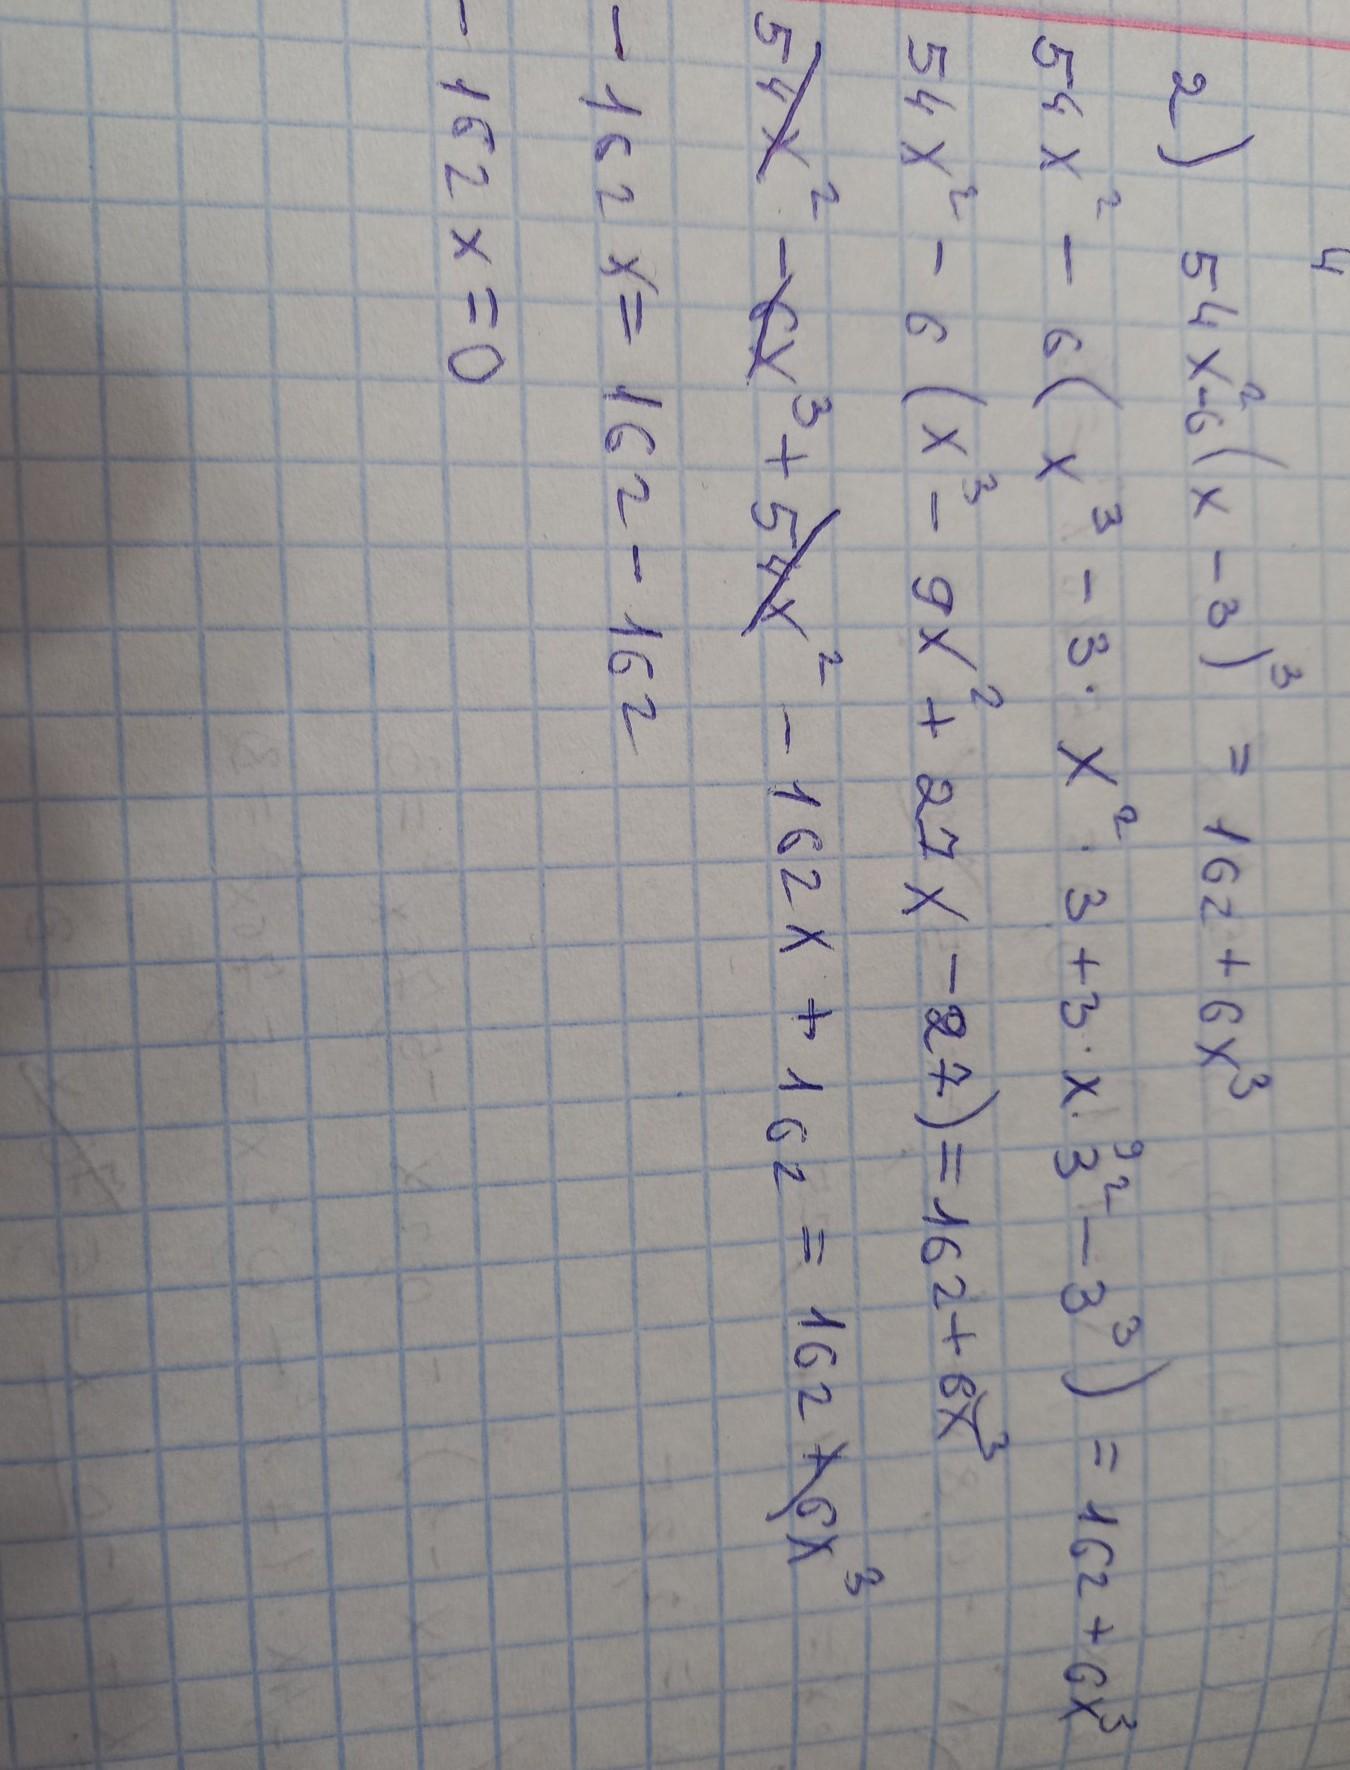 4
2) 54x²-6(x-3)³ = 162+6x³
54x² - 6(x³ - 3·x²·3+3·x·3²⁹ - 3³) = 162+6x³
54x² - 6(x³ - 9x² + 27x - 27) = 162+6x³
54x² - 6x³ + 54x² - 162x + 162 = 162 + 6x³
- 162x = 162 - 162
- 162x = 0